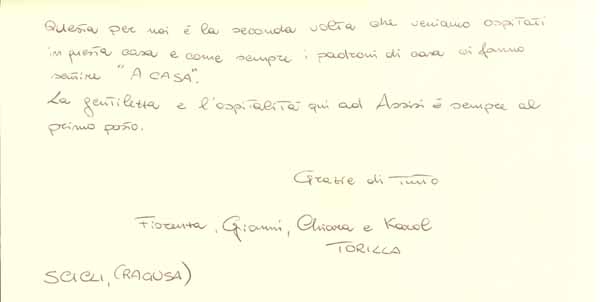 Questa per noi è la seconda volta che veniamo ospitati
in questa casa e come sempre i padroni di casa ci fanno
sentire "A CASA".
La gentilezza e l'ospitalità qui ad Assisi è sempre al
primo posto.
Grazie di tutto
Fiorenza, Gianni, Chiara e Karol
TORILLA
SCICLI, (RAGUSA)